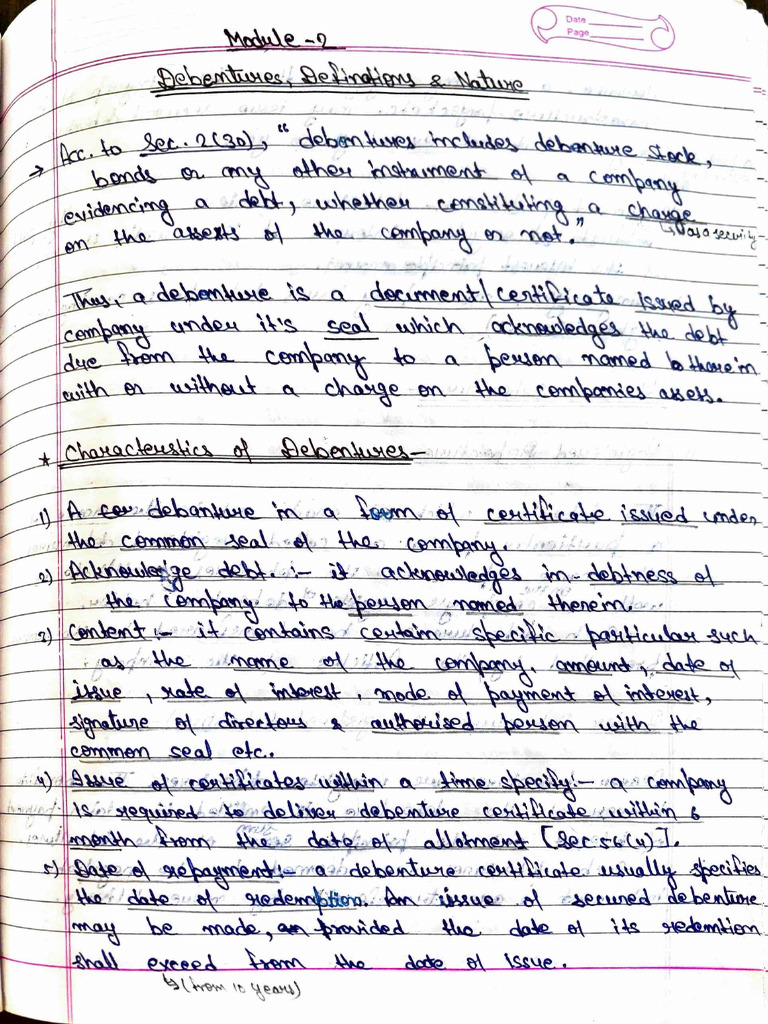 Date
Page
Module - 2
Debentures, Definations & Nature
→ Acc. to Sec. 2(30), "debentures includes debenture stock,
bonds or any other instrument of a company
evidencing a debt, whether constituting a charge
↳ as a security
on the assests of the company or not."
Thus, a debenture is a document/certificate issued by
company under it's seal which acknowledges the debt
due from the company to a person named therein
with or without a charge on the companies assess.
* Characteristics of Debentures-
1) A debanture in a form of certificate issued under
the common seal of the company.
2) Acknowledge debt. :- it acknowledges in-debtness of
the company to the person named therein.
3) Content :- it contains certain specific particular such
as the name of the company, amount, date of
issue, rate of interest, mode of payment of interest,
signature of directors & authorised person with the
common seal etc.
4) Issue of certificates within a time specify:- a company
is required to deliver debenture certificate within 6
month from the date of allotment [Sec 56(4)].
5) Date of repayment:- a debenture certificate usually specifies
the date of redemption. An issue of secured debenture
may be made, provided the date of its redemtion
shall exceed from the date of issue.
↳ (from 10 years)